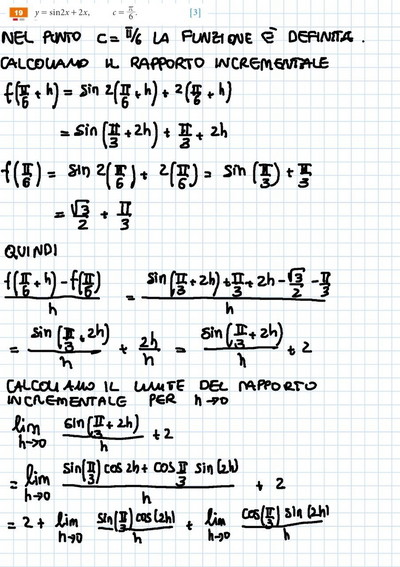 19 y = sin2x + 2x, c = π/6. [3]
NEL PUNTO C = π/6 LA FUNZIONE È DEFINITA.
CALCOLIAMO IL RAPPORTO INCREMENTALE
f(π/6 + h) = sin 2(π/6 + h) + 2(π/6 + h)
= sin(π/3 + 2h) + π/3 + 2h
f(π/6) = sin 2(π/6) + 2(π/6) = sin(π/3) + π/3
= √3/2 + π/3
QUINDI
(f(π/6 + h) - f(π/6))/h = (sin(π/3 + 2h) + π/3 + 2h - √3/2 - π/3)/h
= sin(π/3 + 2h)/h + 2h/h = sin(π/3 + 2h)/h + 2
CALCOLIAMO IL LIMITE DEL RAPPORTO
INCREMENTALE PER h→0
lim h→0 sin(π/3 + 2h)/h + 2
= lim h→0 (sin(π/3) cos 2h + cos π/3 sin(2h))/h + 2
= 2 + lim h→0 sin(π/3) cos(2h)/h + lim h→0 cos(π/3) sin(2h)/h